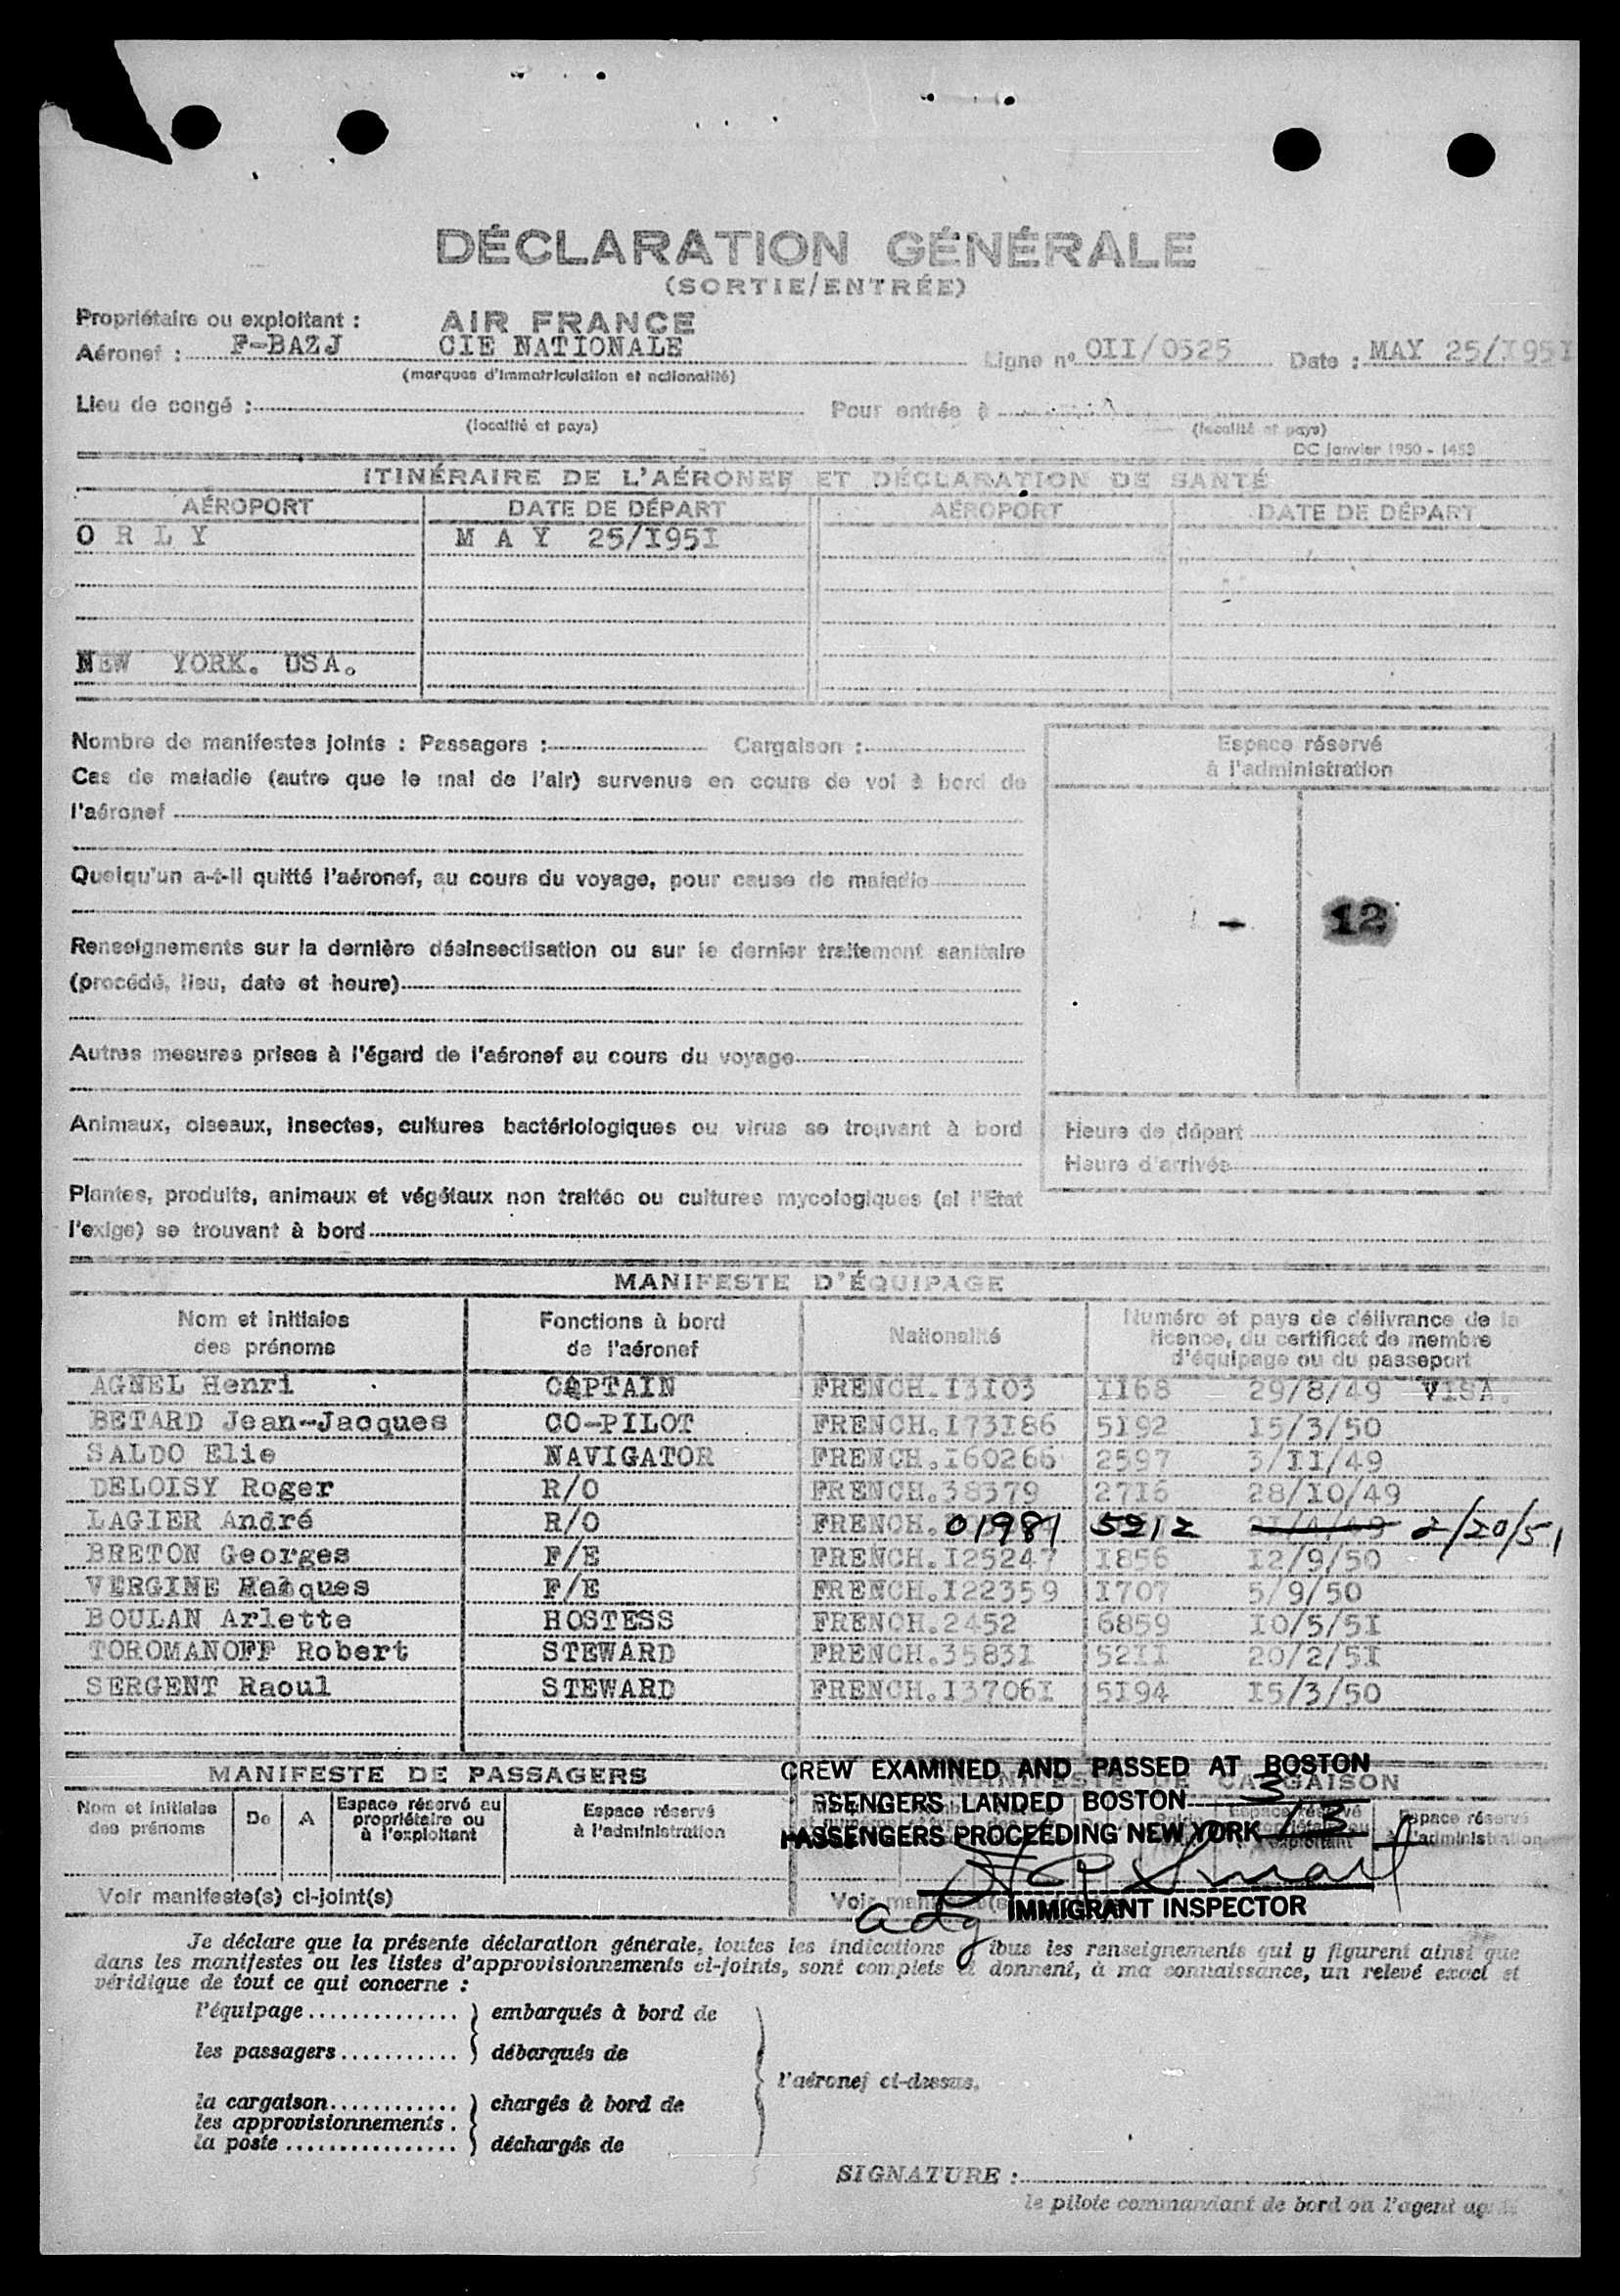 DÉCLARATION GÉNÉRALE
(SORTIE/ENTRÉE)
Propriétaire ou exploitant : AIR FRANCE
Aéronef : F-BAZJ CIE NATIONALE Ligne nº OII/0525 Date : MAY 25/I95I
(marques d'immatriculation et nationalité)
Lieu de congé : Pour entrée à
(localité et pays) (localité et pays)
DC janvier 1950 - 1453
ITINÉRAIRE DE L'AÉRONEF ET DÉCLARATION DE SANTÉ
AÉROPORT DATE DE DÉPART AÉROPORT DATE DE DÉPART
O R L Y M A Y 25/I95I
NEW YORK. USA.
Nombre de manifestes joints : Passagers : Cargaison :
Cas de maladie (autre que le mal de l'air) survenus en cours de vol à bord de
l'aéronef
Quelqu'un a-t-il quitté l'aéronef, au cours du voyage, pour cause de maladie
Renseignements sur la dernière désinsectisation ou sur le dernier traitement sanitaire
(procédé, lieu, date et heure)
Autres mesures prises à l'égard de l'aéronef au cours du voyage
Animaux, oiseaux, insectes, cultures bactériologiques ou virus se trouvant à bord
Plantes, produits, animaux et végétaux non traités ou cultures mycologiques (si l'Etat
l'exige) se trouvant à bord
Espace réservé
à l'administration
- 12
Heure de départ
Heure d'arrivée
MANIFESTE D'ÉQUIPAGE
Nom et initiales des prénoms
Fonctions à bord de l'aéronef
Nationalité
Numéro et pays de délivrance de la licence, du certificat de membre d'équipage ou du passeport
AGNEL Henri CAPTAIN FRENCH.I3I03 II68 29/8/49 VISA.
BETARD Jean-Jacques CO-PILOT FRENCH.I73I86 5I92 I5/3/50
SALDO Elie NAVIGATOR FRENCH.I60266 2597 3/II/49
DELOISY Roger R/O FRENCH.38379 27I6 28/I0/49
LAGIER André R/O FRENCH. 01981 5212 2I/4/49 2/20/51
BRETON Georges F/E FRENCH.I25247 I856 I2/9/50
VERGINE Jacques F/E FRENCH.I22359 I707 5/9/50
BOULAN Arlette HOSTESS FRENCH.2452 6859 I0/5/5I
TOROMANOFF Robert STEWARD FRENCH.3583I 52II 20/2/5I
SERGENT Raoul STEWARD FRENCH.I3706I 5I94 I5/3/50
MANIFESTE DE PASSAGERS
Nom et initiales des prénoms
De A
Espace réservé au propriétaire ou à l'exploitant
Espace réservé à l'administration
Voir manifeste(s) ci-joint(s)
MANIFESTE DE CARGAISON
CREW EXAMINED AND PASSED AT BOSTON
SSENGERS LANDED BOSTON 3
PASSENGERS PROCEEDING NEW YORK 13
IMMIGRANT INSPECTOR
Je déclare que la présente déclaration générale, toutes les indications ibus les renseignements qui y figurent ainsi que
dans les manifestes ou les listes d'approvisionnements ci-joints, sont complets et donnent, à ma connaissance, un relevé exact et
véridique de tout ce qui concerne :
l'équipage.............. ) embarqués à bord de
les passagers........... ) débarqués de
l'aéronef ci-dessus.
la cargaison............ ) chargés à bord de
les approvisionnements .
la poste ................ ) déchargés de
SIGNATURE :
le pilote commandant de bord ou l'agent